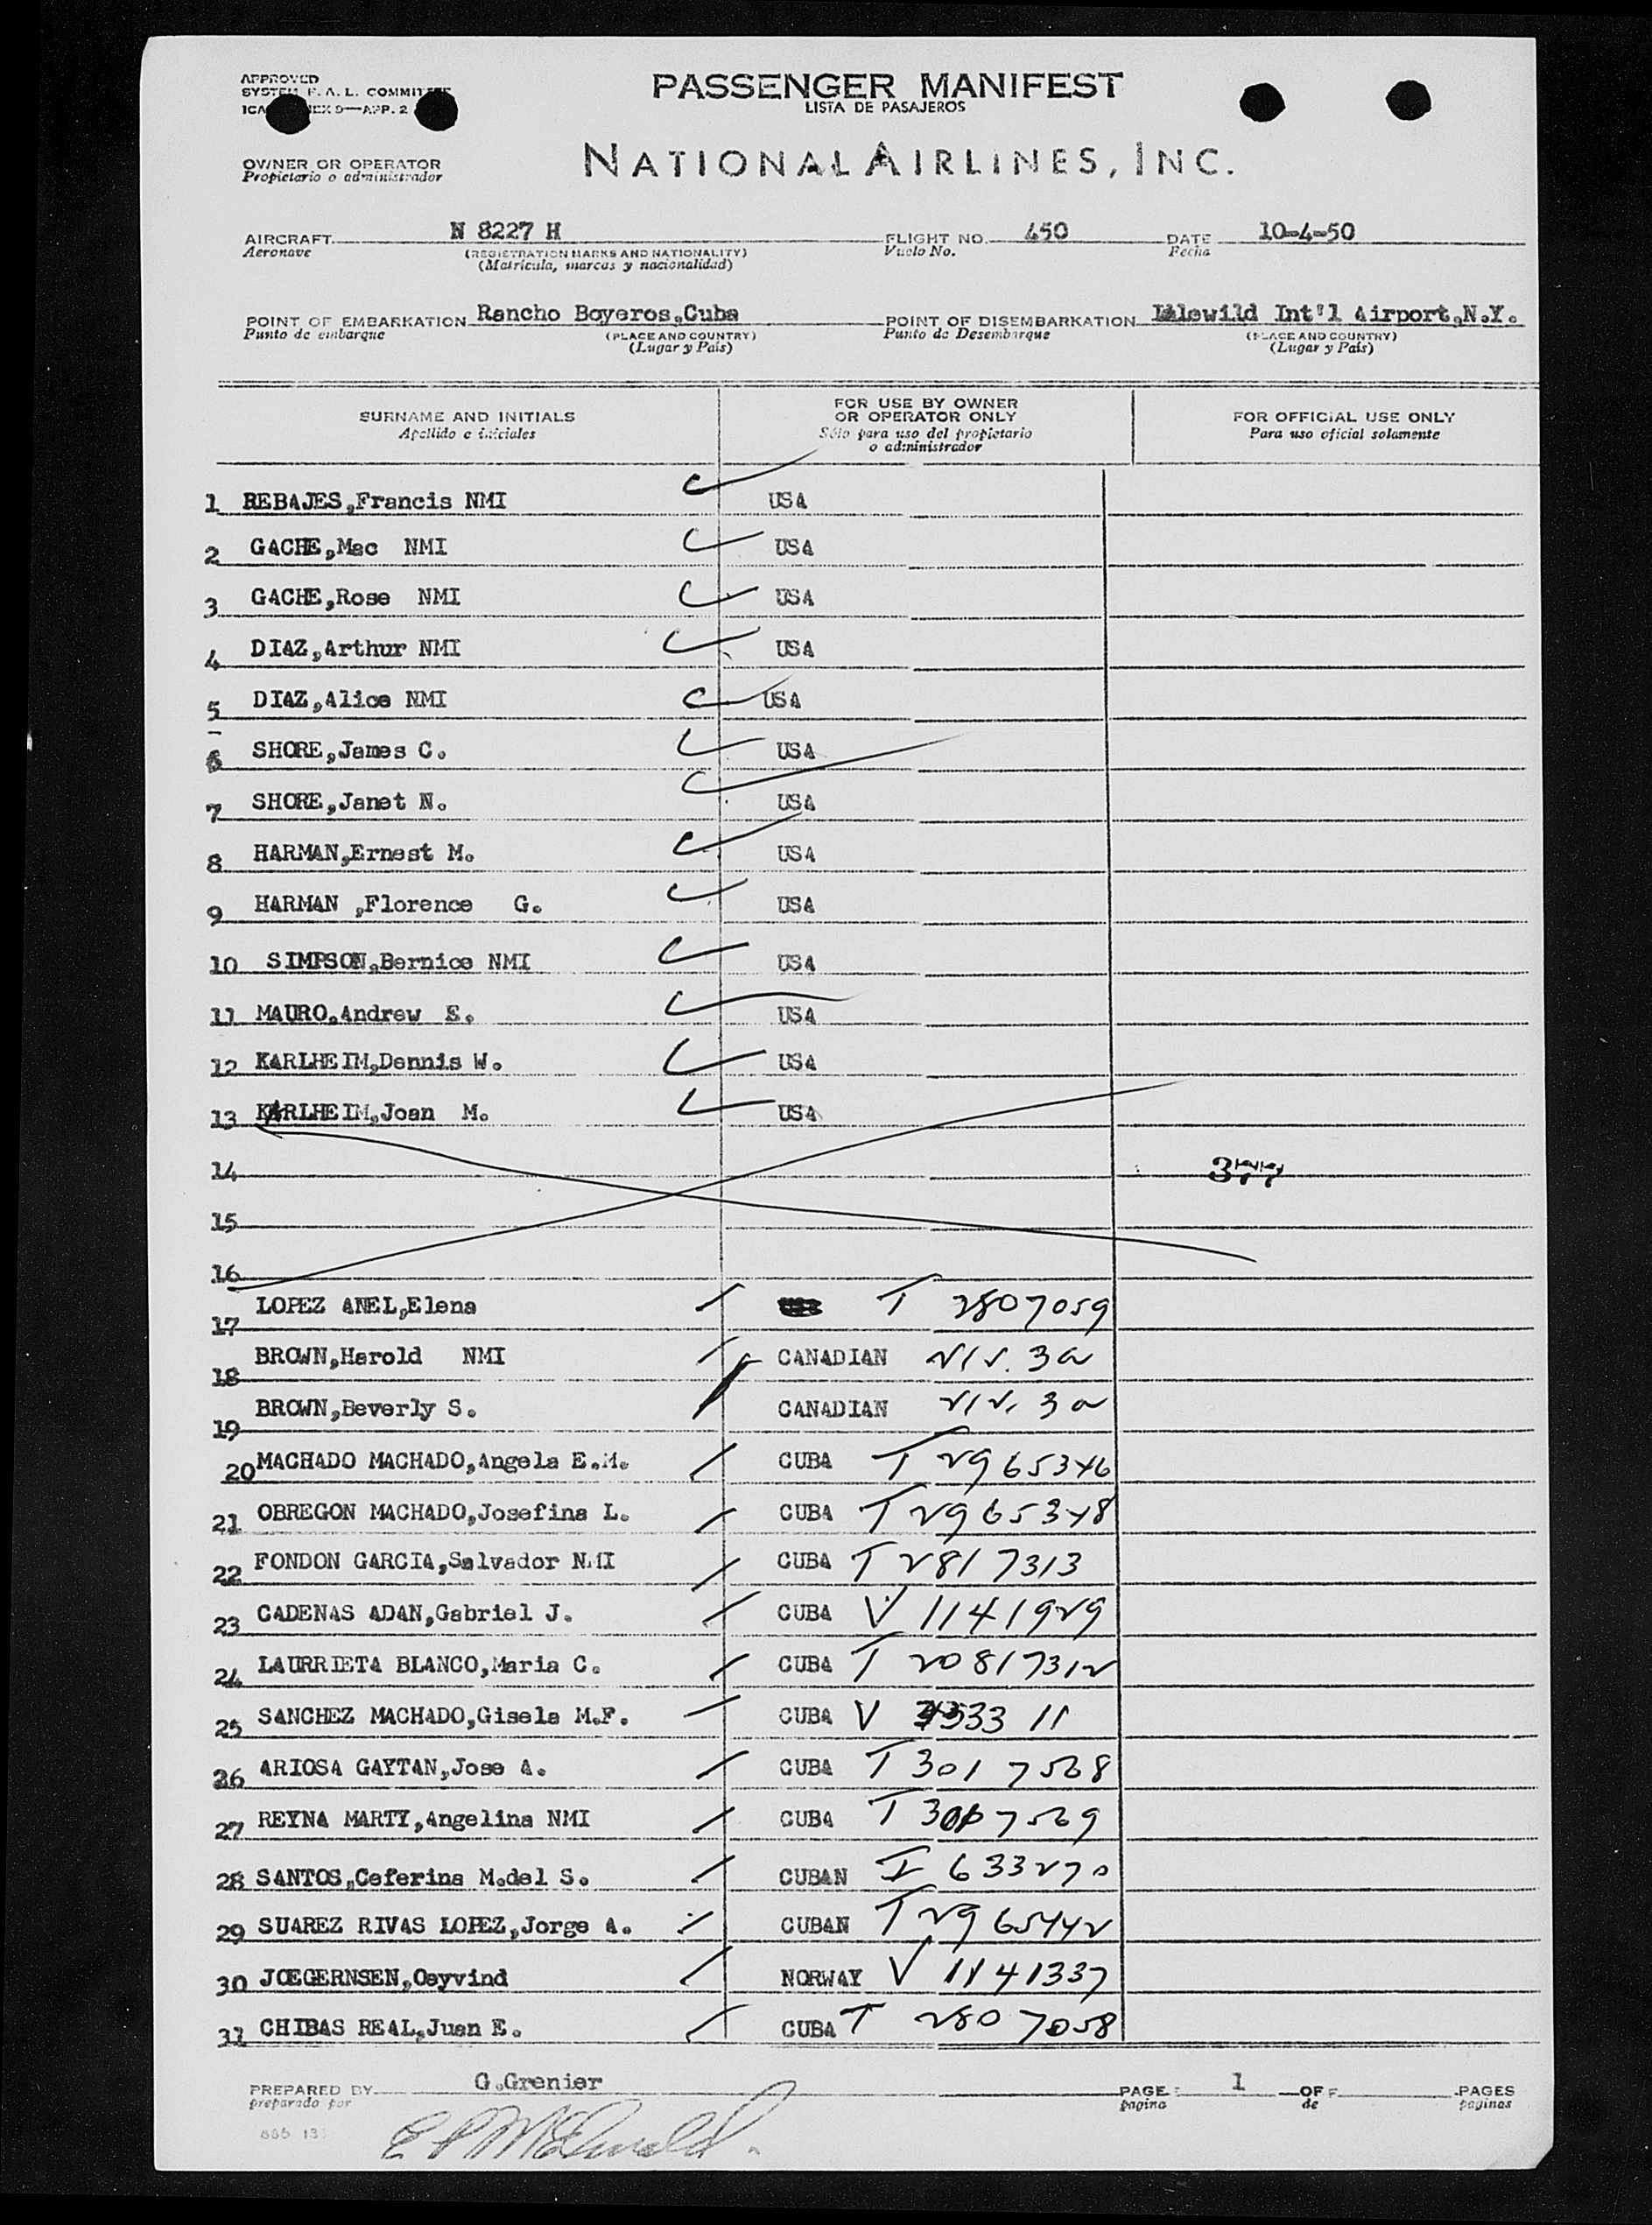 APPROVED
SYSTEM F. A. L. COMMITTEE
ICA NEX 9—APP. 2
PASSENGER MANIFEST
LISTA DE PASAJEROS
OWNER OR OPERATOR
Propietario o administrador
NATIONAL AIRLINES, INC.
AIRCRAFT N 8227 H FLIGHT NO. 450 DATE 10-4-50
Aeronave (REGISTRATION MARKS AND NATIONALITY) Vuelo No. Fecha
(Matrícula, marcas y nacionalidad)
POINT OF EMBARKATION Rancho Boyeros,Cuba POINT OF DISEMBARKATION Idlewild Int'l Airport,N.Y.
Punto de embarque (PLACE AND COUNTRY) Punto de Desembarque (PLACE AND COUNTRY)
(Lugar y País) (Lugar y País)
SURNAME AND INITIALS FOR USE BY OWNER OR OPERATOR ONLY FOR OFFICIAL USE ONLY
Apellido e iniciales Sólo para uso del propietario o administrador Para uso oficial solamente
1 REBAJES,Francis NMI USA
2 GACHE,Mac NMI USA
3 GACHE,Rose NMI USA
4 DIAZ,Arthur NMI USA
5 DIAZ,Alice NMI USA
6 SHORE,James C. USA
7 SHORE,Janet N. USA
8 HARMAN,Ernest M. USA
9 HARMAN ,Florence G. USA
10 SIMPSON,Bernice NMI USA
11 MAURO,Andrew E. USA
12 KARLHEIM,Dennis W. USA
13 KARLHEIM,Joan M. USA
14 377
15
16
17 LOPEZ ANEL,Elena T 2807059
18 BROWN,Harold NMI CANADIAN Vis. 3a
19 BROWN,Beverly S. CANADIAN Vis. 3a
20 MACHADO MACHADO,Angela E.M. CUBA T 2965346
21 OBREGON MACHADO,Josefina L. CUBA T 2965348
22 FONDON GARCIA,Salvador NMI CUBA T 2817313
23 CADENAS ADAN,Gabriel J. CUBA V 1141929
24 LAURRIETA BLANCO,Maria C. CUBA T 20817312
25 SANCHEZ MACHADO,Gisela M.F. CUBA V
26 ARIOSA GAYTAN,Jose A. CUBA T 3017568
27 REYNA MARTY,Angelina NMI CUBA T 3017569
28 SANTOS,Ceferina M.del S. CUBAN I 633270
29 SUAREZ RIVAS LOPEZ,Jorge A. CUBAN T 2965442
30 JOEGERNSEN,Oeyvind NORWAY V 1141337
31 CHIBAS REAL,Juan E. CUBA T 2807058
PREPARED BY G.Grenier PAGE 1 OF PAGES
preparado por pagina de paginas